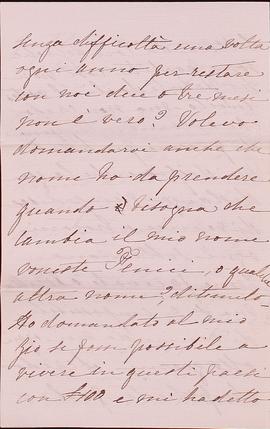 senza difficoltà una volta
ogni anno per restare
con noi due o tre mesi
non è vero? Volevo
domandarvi anche che
nome ho da prendere
quando bisogna che
cambia il mio nome
voreste Fenici, o qualche
altra nome?, ditamelo
Ho domandato al mio
Zio se fosse possibile a
vivere in questi paesi
con £400 e mi ha detto